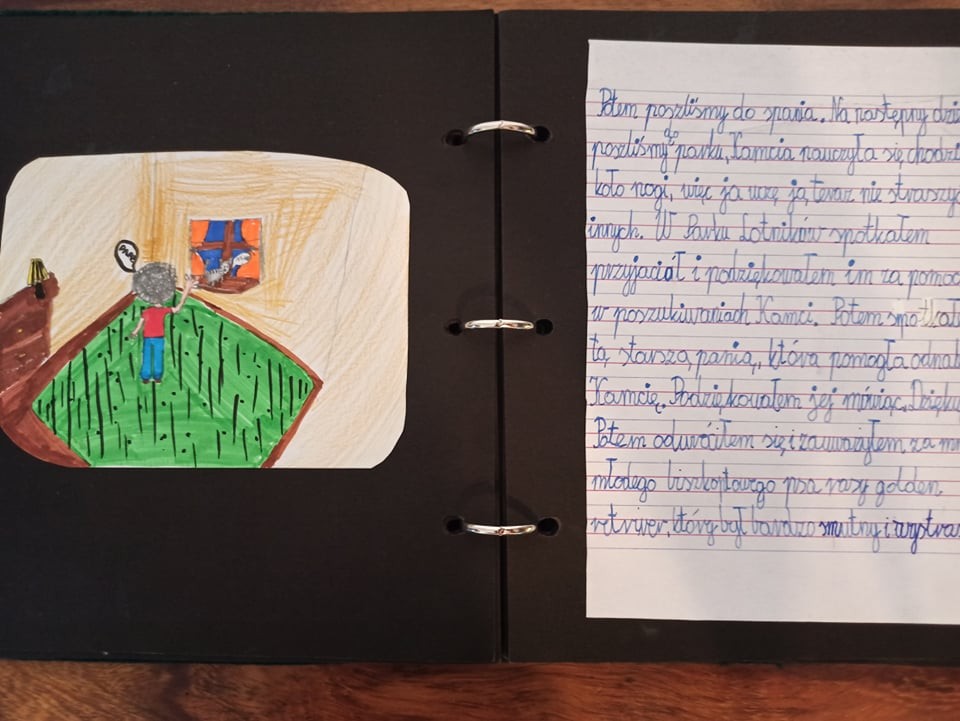 Potem poszliśmy do spania. Na następny dzie
poszliśmy do parku, Kamcia nauczyła się chodzi
koło nogi, więc ja uczę ją teraz nie straszyć
innych. W Parku Lotników spotkałem
przyjaciół i podziękowałem im za pomoc
w poszukiwaniach Kamci. Potem spotkał
tą starszą panią, która pomogła odnal
Kamcię. Podziękowałem jej mówiąc, Dzięku
Potem odwróiłem się i zauważyłem za m
młodego biszkoptowgo psa rasy golden
retriver, który był bardzo smutny i wystra